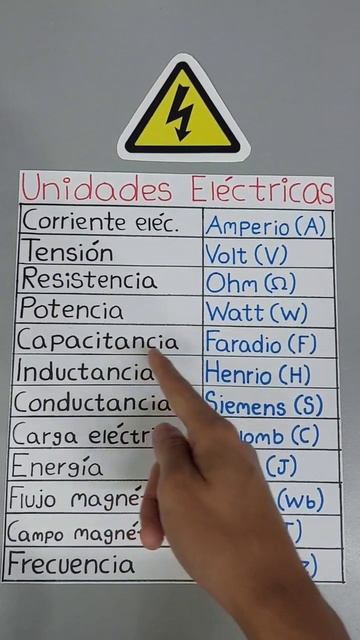 Unidades Eléctricas
Corriente eléc. Amperio (A)
Tensión Volt (V)
Resistencia Ohm (Ω)
Potencia Watt (W)
Capacitancia Faradio (F)
Inductancia Henrio (H)
Conductancia Siemens (S)
Carga (C)
Energía (J)
Flujo (Wb)
Campo
Frecuencia